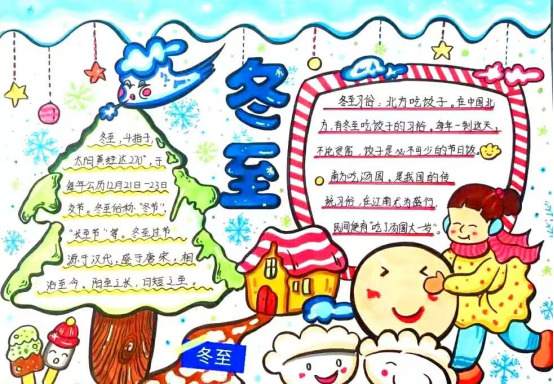 冬至
冬至,斗指子,
太阳黄经达270°,于
每年公历12月21日-23日
交节。冬至俗称"冬节"、
"长至节"等。冬至过节
源于汉代,盛于唐宋,相
沿至今。阳至之长,日短之至,
冬至习俗:北方吃饺子。在中国北
方,有冬至吃饺子的习俗。每年一到这天,
不论贫富,饺子是必不可少的节日饭
南方吃汤圆,是我国的传
统习俗,在江南尤为盛行,
民间便有"吃了汤圆大一岁"。
冬至